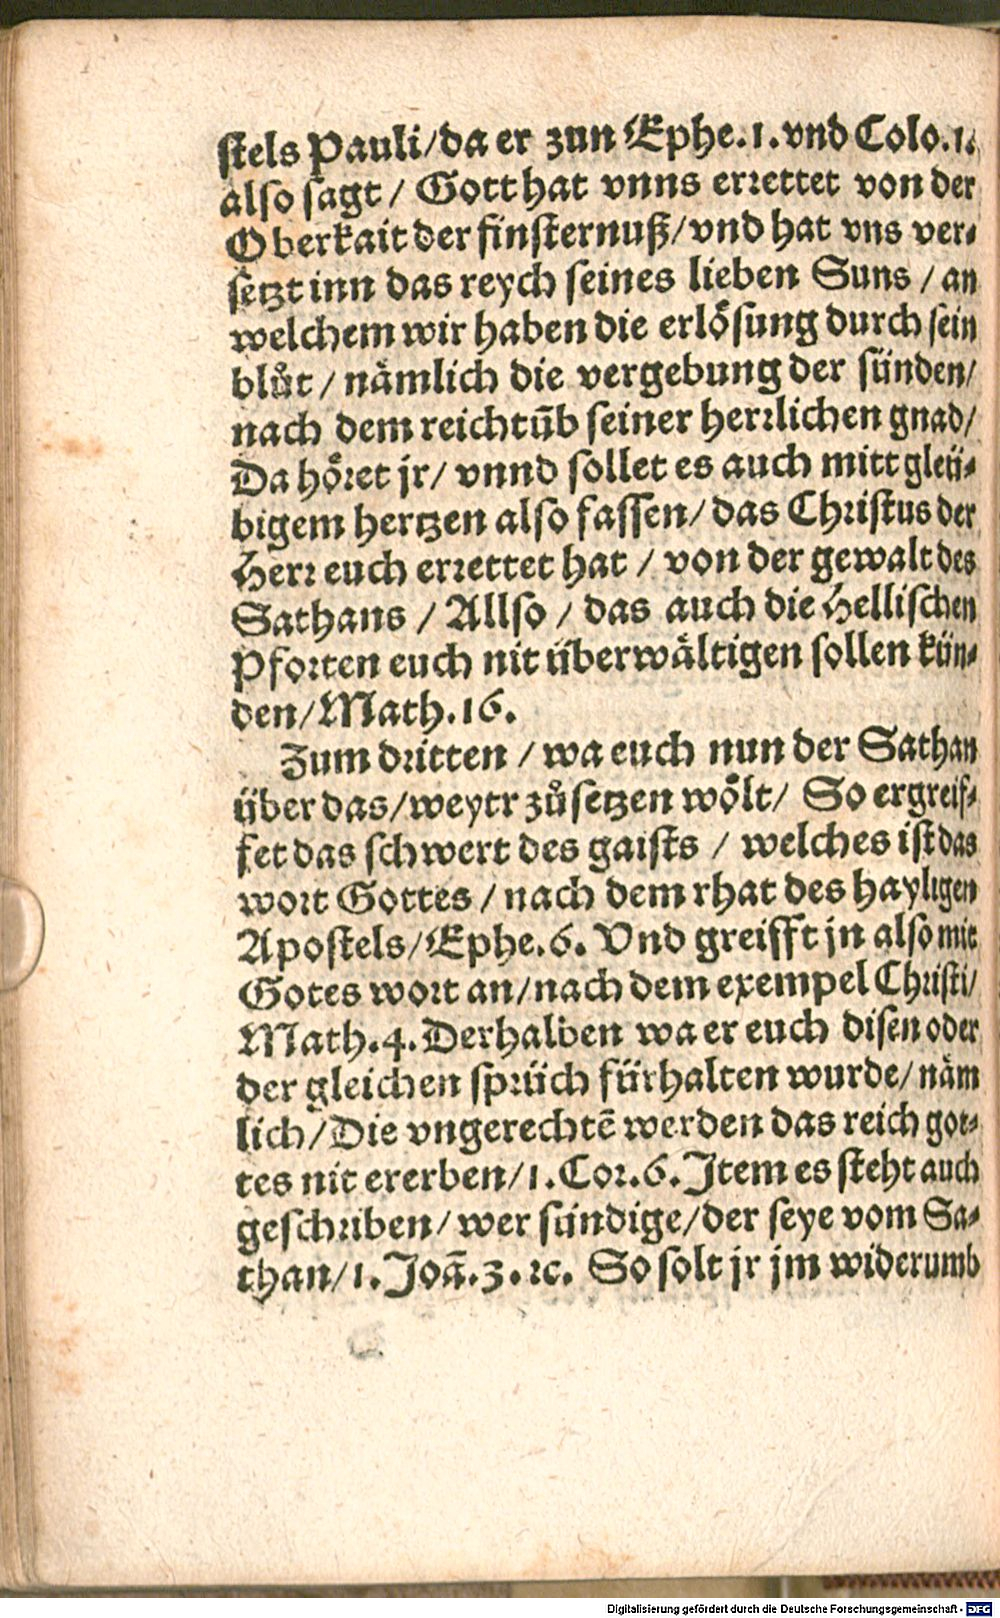 stels Pauli/da er zun Ephe.1.vnd Colo.1.
also sagt / Gott hat vnns errettet von der
Oberkait der finsternuß/vnd hat vns ver-
setzt inn das reych seines lieben Suns / an
welchem wir haben die erlösung durch sein
blůt / nämlich die vergebung der sünden/
nach dem reichtūb seiner herrlichen gnad/
Da höret jr/ vnnd sollet es auch mitt gleü-
bigem hertzen also fassen/ das Christus der
Herr euch errettet hat / von der gewalt des
Sathans / Allso / das auch die Hellischen
Pforten euch nit überwältigen sollen kün-
den/Math.16.
Zum dritten / wa euch nun der Sathan
über das/weytr zůsetzen wölt/ So ergreif-
fet das schwert des gaists / welches ist das
wort Gottes / nach dem rhat des hayligen
Apostels/Ephe.6. Vnd greifft jn also mit
Gotes wort an/nach dem exempel Christi/
Math.4. Derhalben wa er euch disen oder
der gleichen sprüch fürhalten wurde/ näm
lich/Die vngerechtē werden das reich got-
tes nit ererben/1.Cor.6. Item es steht auch
geschriben/ wer sündige/der seye vom Sa-
than/1. Joā.3.ꝛc. So solt jr jm widerumb
Digitalisierung gefördert durch die Deutsche Forschungsgemeinschaft - DFG